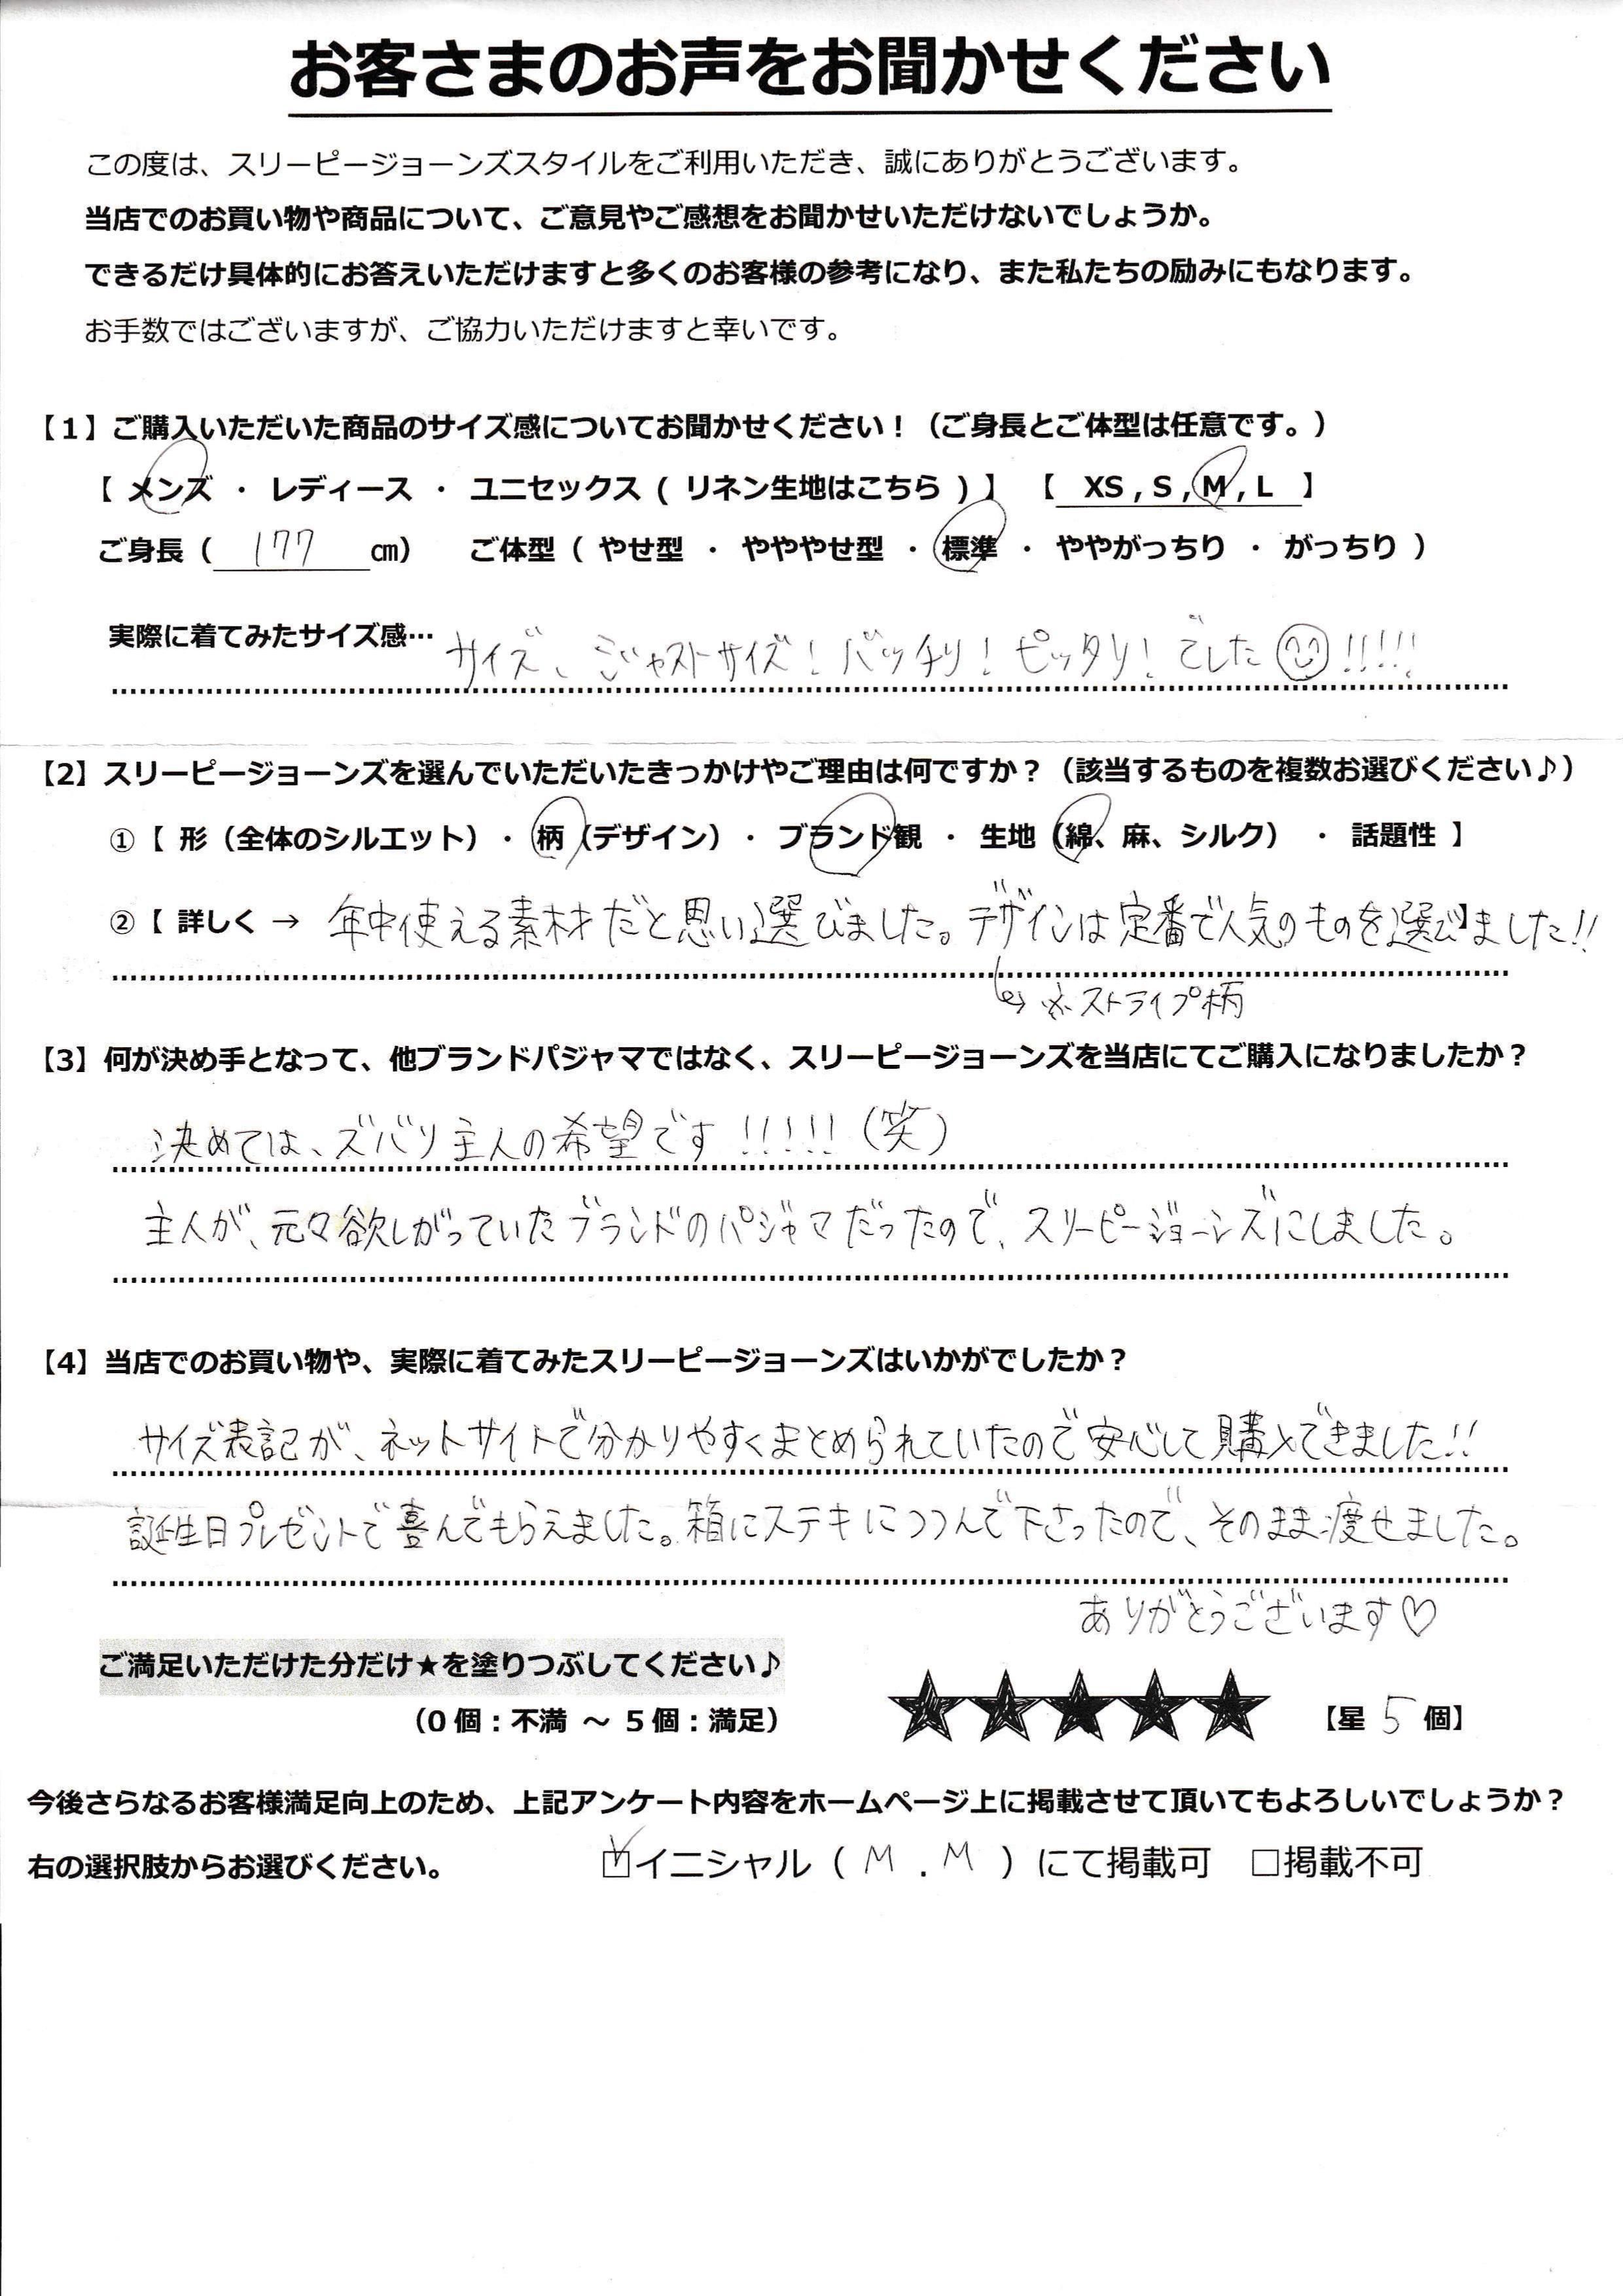 お客さまのお声をお聞かせください
この度は、スリーピージョーンズスタイルをご利用いただき、誠にありがとうございます。
当店でのお買い物や商品について、ご意見やご感想をお聞かせいただけないでしょうか。
できるだけ具体的にお答えいただけますと多くのお客様の参考になり、また私たちの励みにもなります。
お手数ではございますが、ご協力いただけますと幸いです。
【1】ご購入いただいた商品のサイズ感についてお聞かせください！（ご身長とご体型は任意です。）
【 メンズ ・ レディース ・ ユニセックス ( リネン生地はこちら ) 】 【 XS , S , M , L 】
ご身長（ 177 ㎝） ご体型（ やせ型 ・ やややせ型 ・ 標準 ・ ややがっちり ・ がっちり ）
実際に着てみたサイズ感… サイズ、ジャストサイズ！バッチリ！ピッタリ！でした☺!!!!!
【2】スリーピージョーンズを選んでいただいたきっかけやご理由は何ですか？（該当するものを複数お選びください♪）
①【 形（全体のシルエット）・ 柄（デザイン）・ ブランド観 ・ 生地（綿、麻、シルク） ・ 話題性 】
②【 詳しく → 年中使える素材だと思い選びました。デザインは定番で人気のものを選び】ました!!
↳ ※ストライプ柄
【3】何が決め手となって、他ブランドパジャマではなく、スリーピージョーンズを当店にてご購入になりましたか？
決めては、ズバリ主人の希望です!!!!!（笑）
主人が、元々欲しがっていたブランドのパジャマだったので、スリーピージョーンズにしました。
【4】当店でのお買い物や、実際に着てみたスリーピージョーンズはいかがでしたか？
サイズ表記が、ネットサイトで分かりやすくまとめられていたので安心して購入できました!!
誕生日プレゼントで喜んでもらえました。箱にステキにつつんで下さったので、そのまま渡せました。
ありがとうございます♡
ご満足いただけた分だけ★を塗りつぶしてください♪
（0 個：不満 ～ 5 個：満足） ★★★★★ 【星 5 個】
今後さらなるお客様満足向上のため、上記アンケート内容をホームページ上に掲載させて頂いてもよろしいでしょうか？
右の選択肢からお選びください。 ☑イニシャル（ M . M ）にて掲載可 □掲載不可